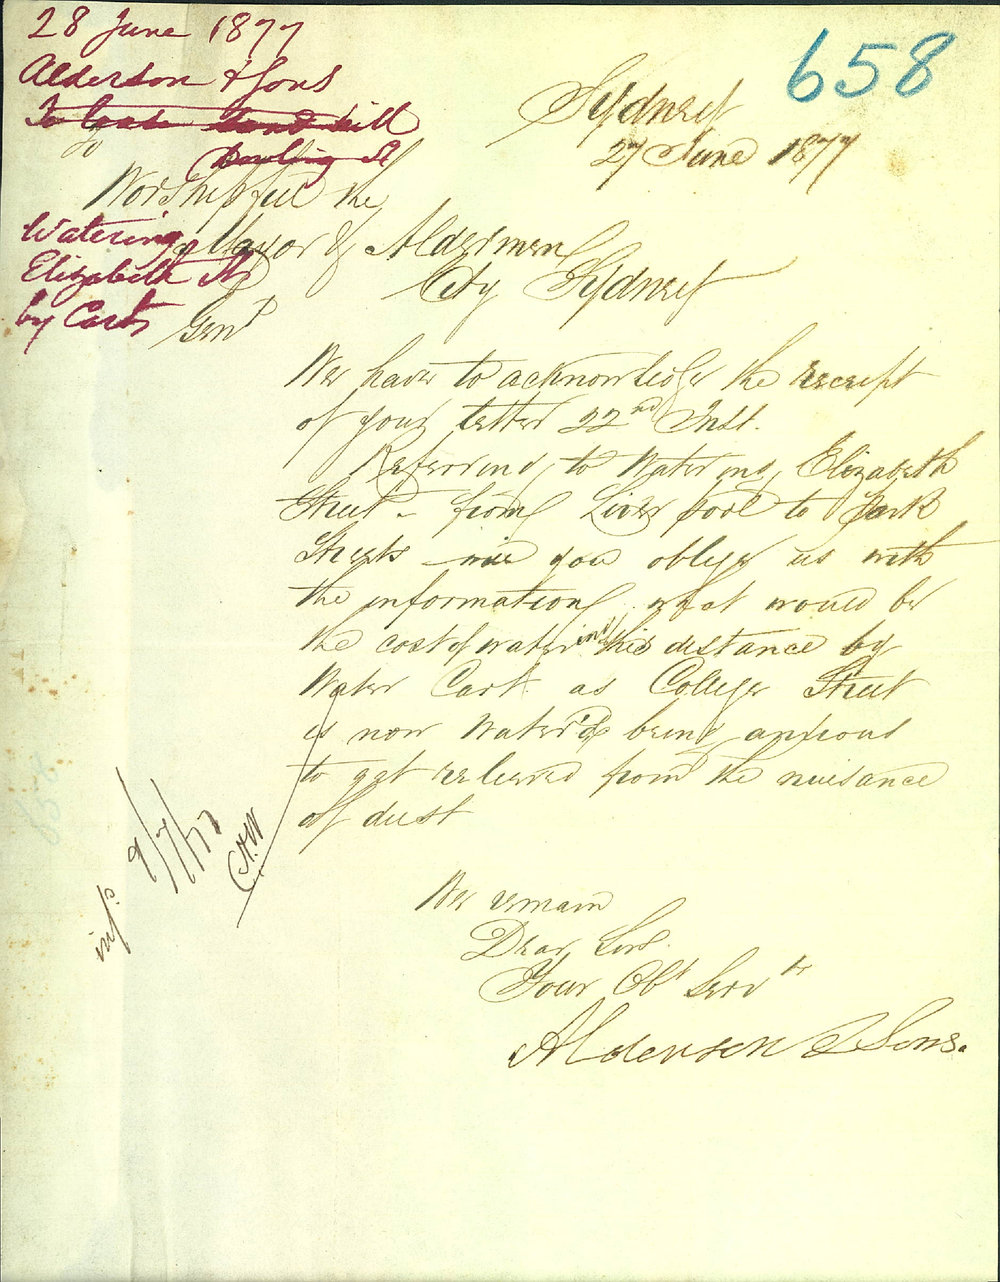 28 June 1877
Alderson & Sons
To Cart Sand hill
Dowling St
Watering
Elizabeth St
by Carts
658
Sydney
27 June 1877
To
Worshipful the
Mayor & Aldermen
City Sydney
Gent
We have to acknowledge the receipt
of your letter 22nd Inst.
Referring to Watering Elizabeth
Street - from Liverpool to Park
Streets will you oblige us with
the information what would be
the cost of watering this distance by
Water Cart as College Street
is now Water'd being anxious
to get relieved from the nuisance
of dust
We remain
Dear Sirs
Your Obt Servts
Alderson & Sons.
inf.
9/7/77